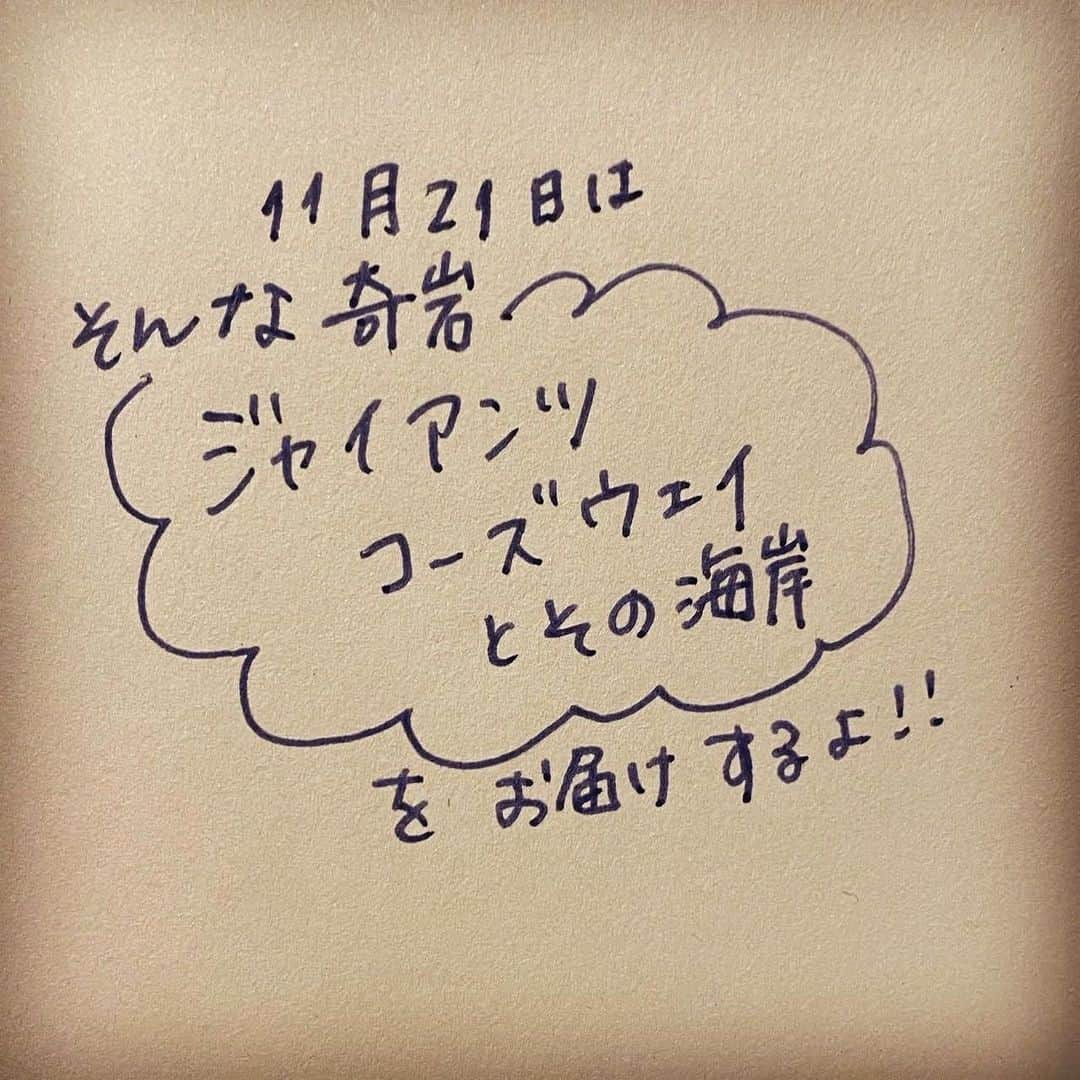 11月21日は
そんな奇岩
ジャイアンツ
コーズウェイ
とその海岸
をお届けするよ!!